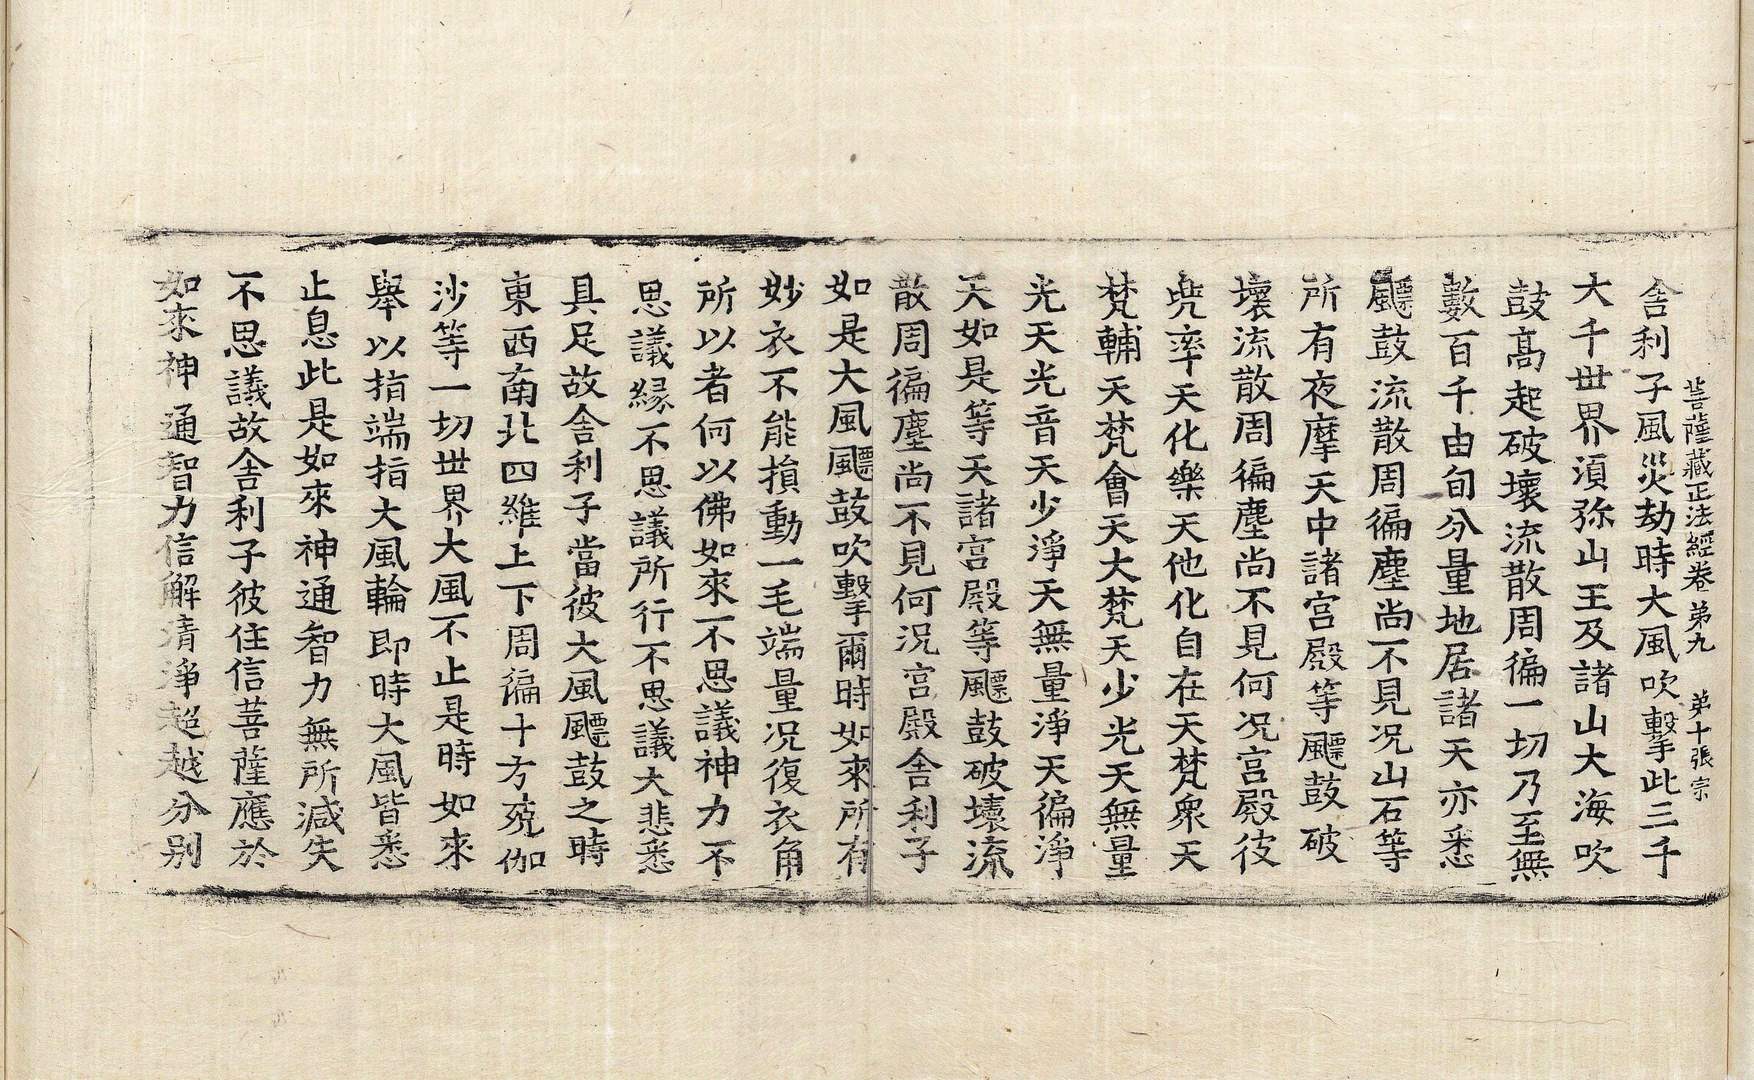 菩薩藏正法經卷第九 第十張 宗
舍利子風災劫時大風吹擊此三千
大千世界湏弥山王及諸山大海吹
鼓髙起破壞流散周徧一切乃至無
數百千由旬分量地居諸天亦悉
飃鼓流散周徧塵尚不見况山石等
所有夜摩天中諸宫殿等飃鼓破
壞流散周徧塵尚不見何况宫殿彼
兠率天化樂天他化自在天梵衆天
梵輔天梵會天大梵天少光天無量
光天光音天少淨天無量淨天徧淨
天如是等天諸宫殿等飃鼓破壊流
散周徧塵尚不見何况宫殿舍利子
如是大風飃鼓吹擊爾時如來所有
妙衣不能損動一毛端量况復衣角
所以者何以佛如來不思議神力不
思議縁不思議所行不思議大悲悉
具足故舍利子當彼大風飃鼓之時
東西南北四維上下周徧十方殑伽
沙等一切世界大風不止是時如來
舉以指端指大風輪即時大風皆悉
止息此是如來神通智力無所減失
不思議故舍利子彼住信菩薩應於
如來神通智力信解清淨超越分别